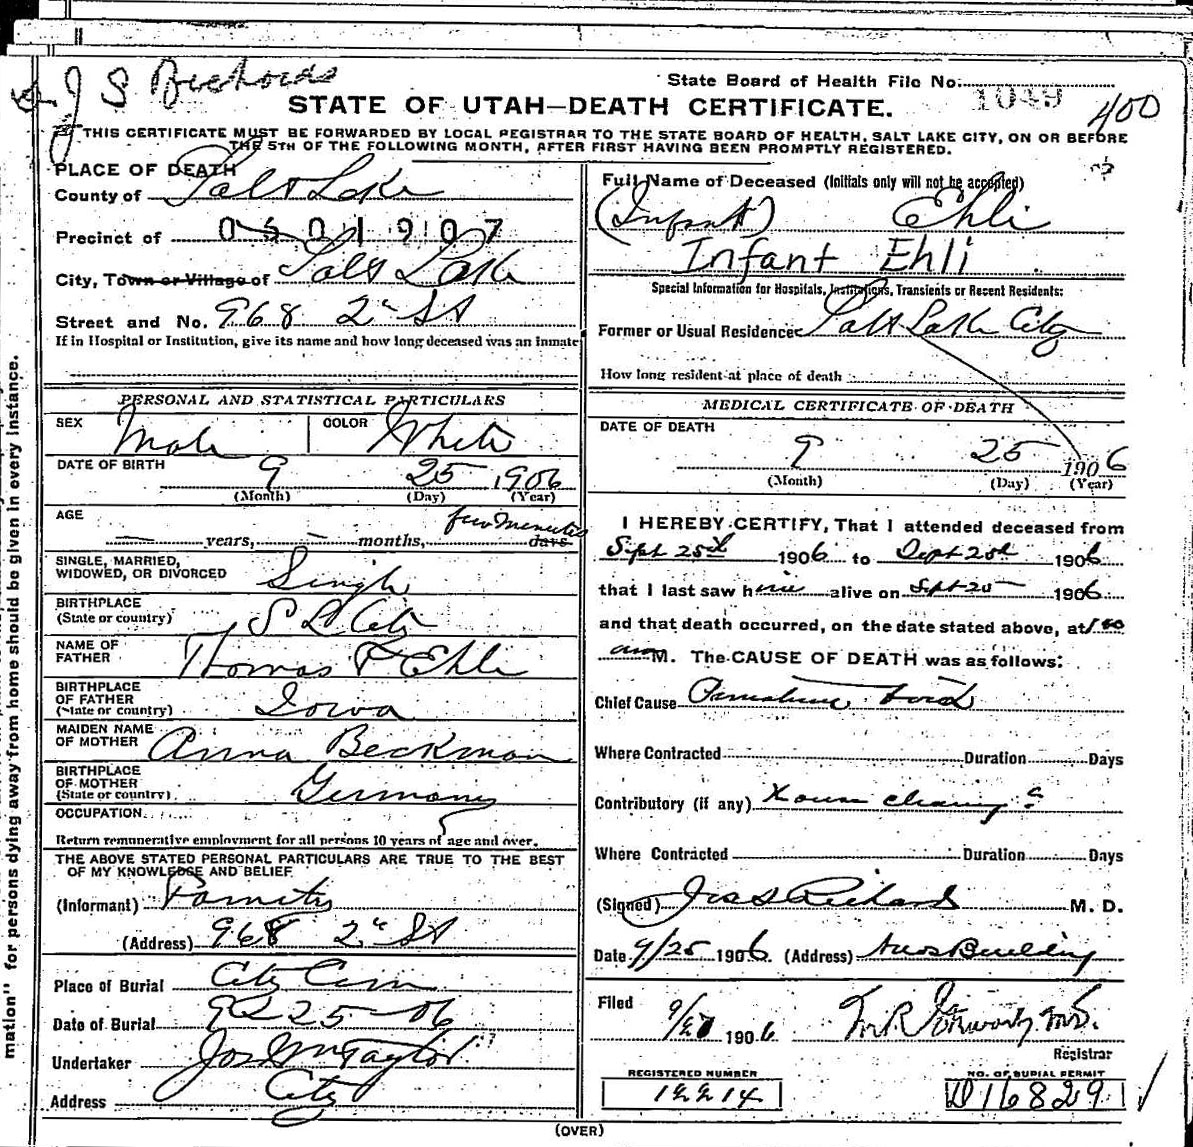 J S Richards
State Board of Health File No. 1049
400
STATE OF UTAH—DEATH CERTIFICATE.
THIS CERTIFICATE MUST BE FORWARDED BY LOCAL REGISTRAR TO THE STATE BOARD OF HEALTH, SALT LAKE CITY, ON OR BEFORE
THE 5TH OF THE FOLLOWING MONTH, AFTER FIRST HAVING BEEN PROMPTLY REGISTERED.
PLACE OF DEATH
County of Salt Lake
Precinct of 0501907
City, Town or Village of Salt Lake
Street and No. 968 2d St
If in Hospital or Institution, give its name and how long deceased was an inmate
PERSONAL AND STATISTICAL PARTICULARS
SEX Male COLOR White
DATE OF BIRTH 9 25 1906
(Month) (Day) (Year)
AGE years, months, few minutes days
SINGLE, MARRIED,
WIDOWED, OR DIVORCED Single
BIRTHPLACE
(State or country) S L City
NAME OF
FATHER Thomas F Ehli
BIRTHPLACE
OF FATHER
(State or country) Iowa
MAIDEN NAME
OF MOTHER Anna Beckman
BIRTHPLACE
OF MOTHER
(State or country) Germany
OCCUPATION
Return remunerative employment for all persons 10 years of age and over.
THE ABOVE STATED PERSONAL PARTICULARS ARE TRUE TO THE BEST
OF MY KNOWLEDGE AND BELIEF
(Informant)
(Address) 968 2d St
Place of Burial City Cem
Date of Burial 9 25 06
Undertaker Jos Wm Taylor
Address City
Full Name of Deceased (Initials only will not be accepted)
(Infant) Ehli
Infant Ehli
Special Information for Hospitals, Institutions, Transients or Recent Residents:
Former or Usual Residence Salt Lake City
How long resident at place of death
MEDICAL CERTIFICATE OF DEATH
DATE OF DEATH
9 25 1906
(Month) (Day) (Year)
I HEREBY CERTIFY, That I attended deceased from
Sept 25th 1906 to Sept 25th 1906
that I last saw him alive on Sept 25 1906
and that death occurred, on the date stated above, at 1 00
am M. The CAUSE OF DEATH was as follows:
Chief Cause Premature
Where Contracted Duration Days
Contributory (if any) House cleaning?
Where Contracted Duration Days
(Signed) Jos S Richards M. D.
Date 9/25 1906 (Address) News Building
Filed 9/27 1906 M.D.
Registrar
REGISTERED NUMBER
12214
NO. OF BURIAL PERMIT
D16829
(OVER)
mation" for persons dying away from home should be given in every instance.